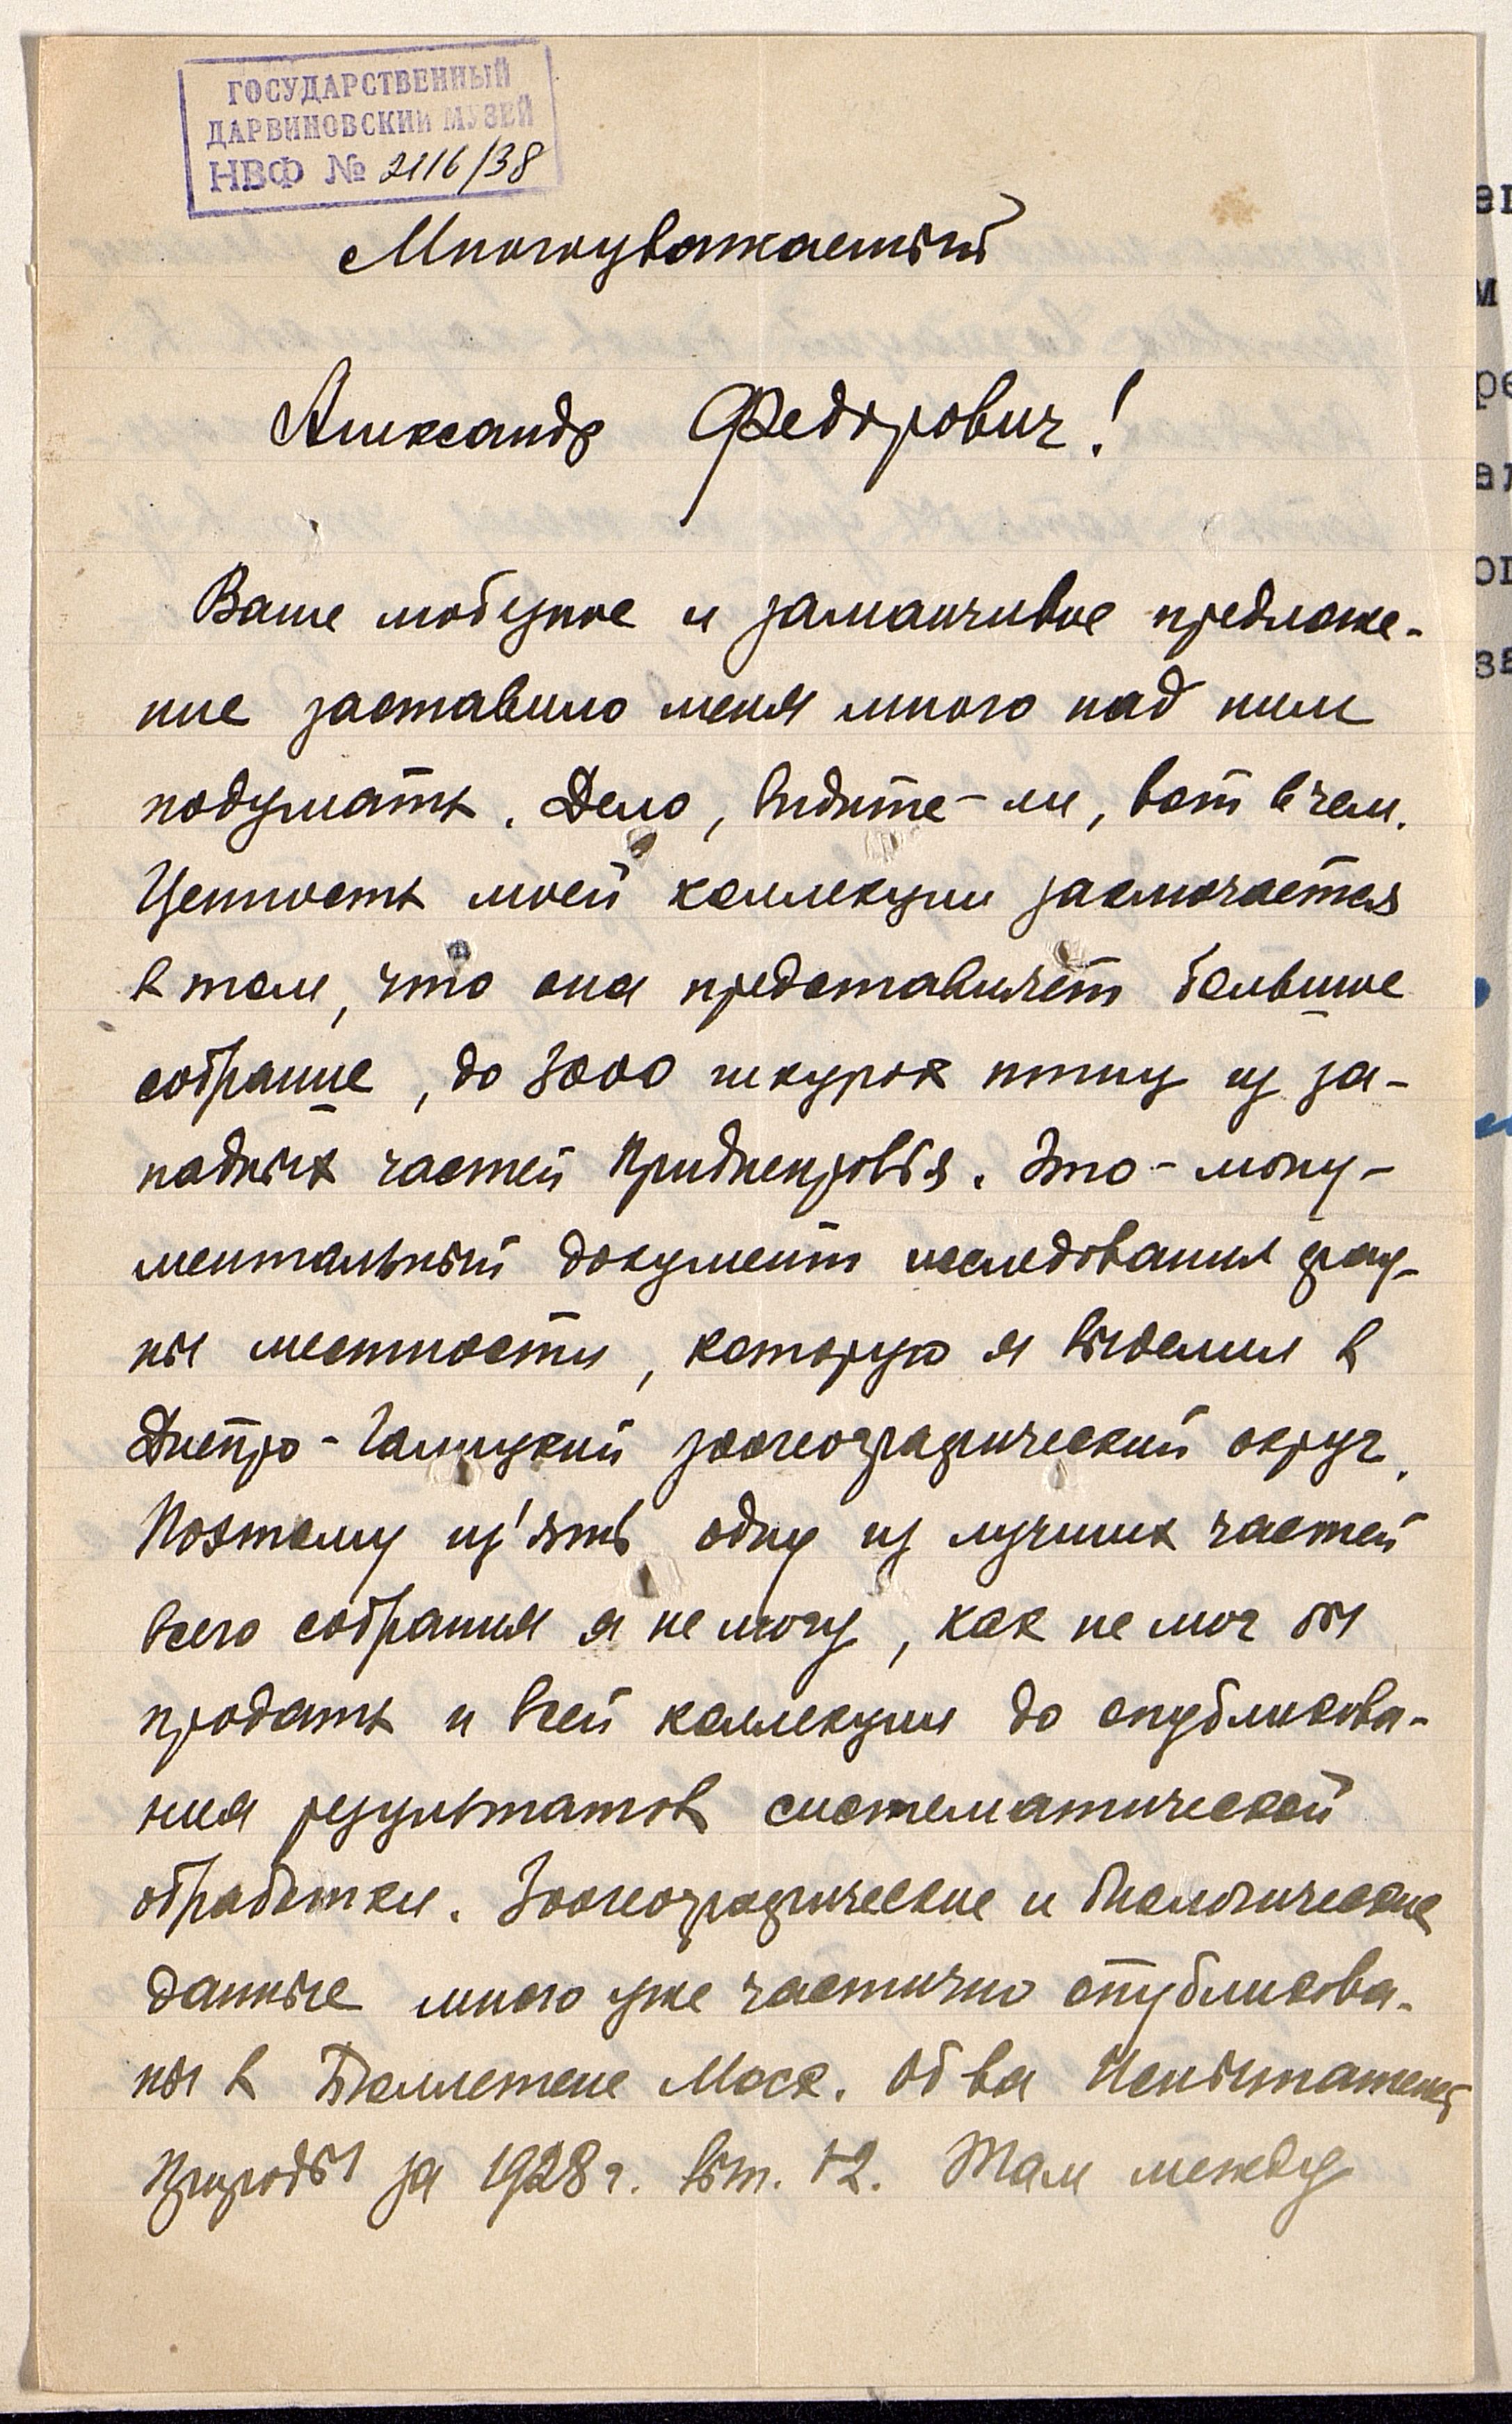 ГОСУДАРСТВЕННЫЙ
ДАРВИНОВСКИЙ МУЗЕЙ
НВФ № 2116/38
Многоуважаемый
Александр Федорович!
Ваше любезное и заманчивое предложе-
ние заставило меня много над ним
подумать. Дело, видите-ли, вот в чем.
Ценность моей коллекции заключается
в том, что она представляет большое
собрание, до 3000 шкурок птиц из за-
падных частей Приднепровья. Это-мону-
ментальный документ исследования фау-
ны местности, которую я выделил в
Днепро-Галицкий зоогеографический округ.
Поэтому из'ять одну из лучших частей
всего собрания я не могу, как не мог бы
продать и всей коллекции до опубликова-
ния результатов систематической
обработки. Зоогеографические и биологические
данные мною уже частично опубликова-
ны в Бюллетене Моск. Об ва Испытателей
Природы за 1928 г. вып. 12. Там между